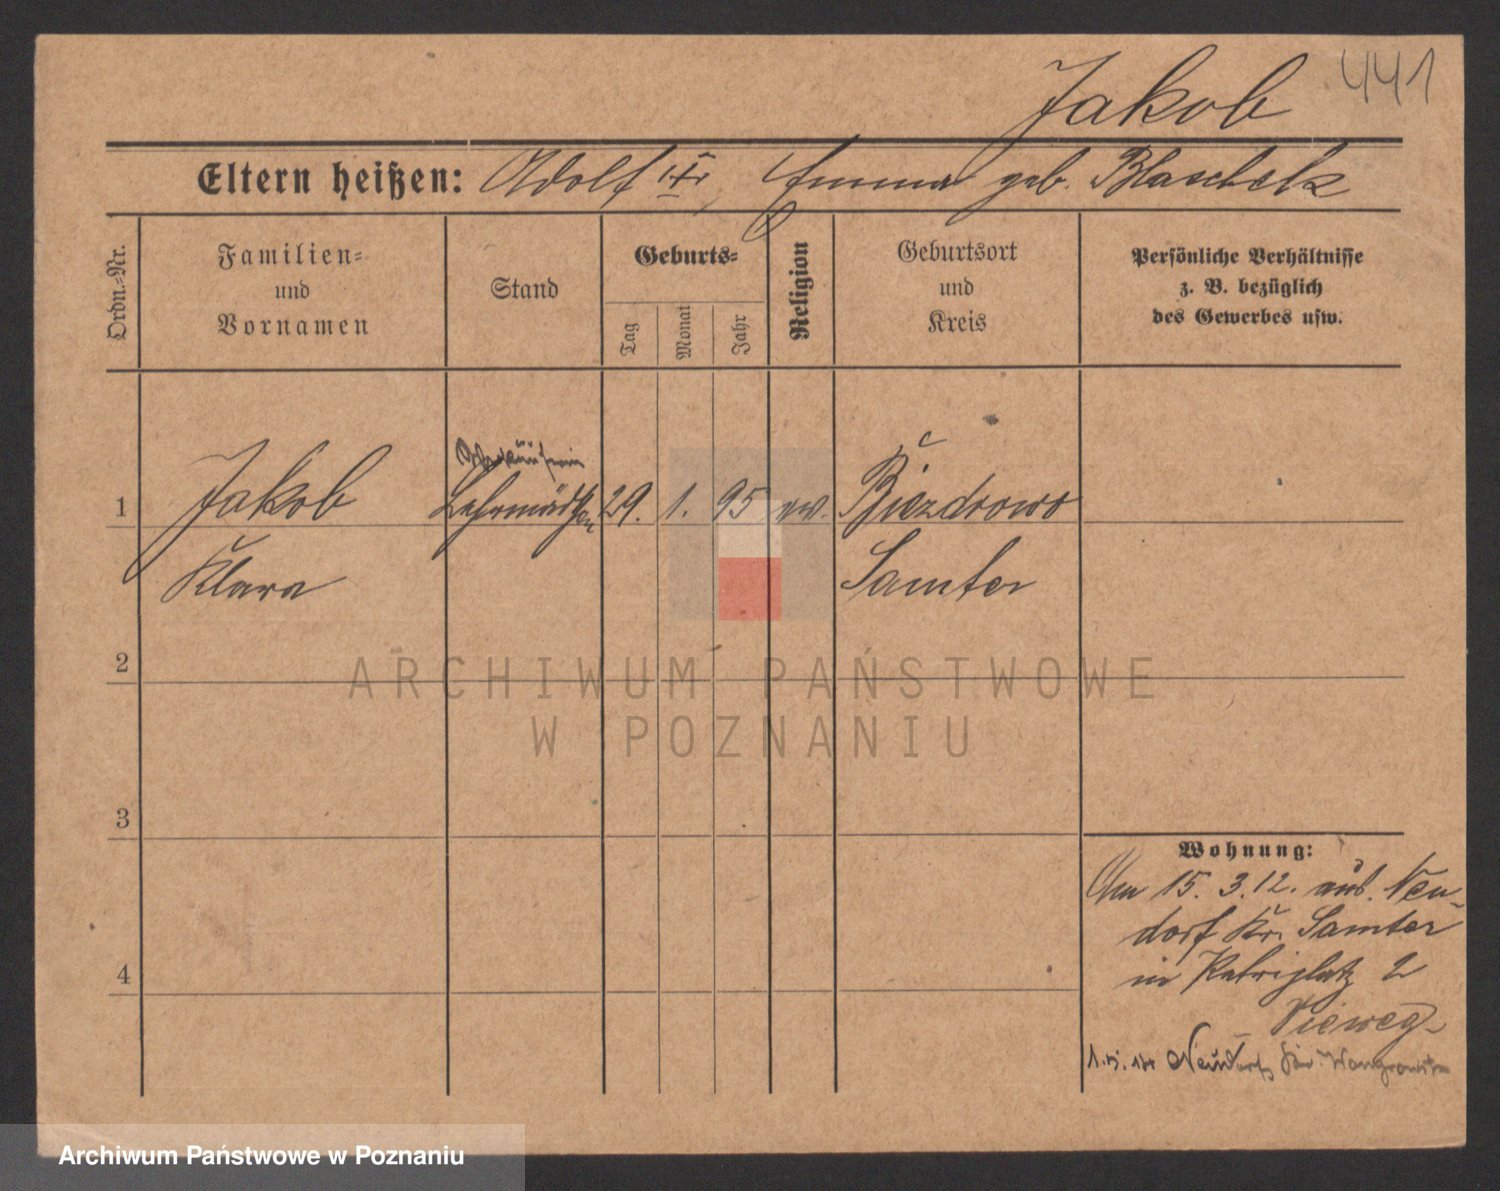 Jakob 441
Eltern heißen: Adolf, Emma geb. Blaschek
Ordn.-Nr.
Familien-
und
Vornamen
Stand
Geburts-
Tag
Monat
Jahr
Religion
Geburtsort
und
Kreis
Persönliche Verhältnisse
z. B. bezüglich
des Gewerbes usw.
Verkäuferin
1 Jakob Lehrmädchen 29. 1. 95 ev. Biezdrowo
Klara Samter
2
3
4
Wohnung:
Am 15. 3. 12. aus. Neu-
dorf Kr. Samter
in Petriplatz 2
Vieweg
1.5.14 Neudorf Kr. Wongrowitz
ARCHIWUM PAŃSTWOWE
W POZNANIU
Archiwum Państwowe w Poznaniu